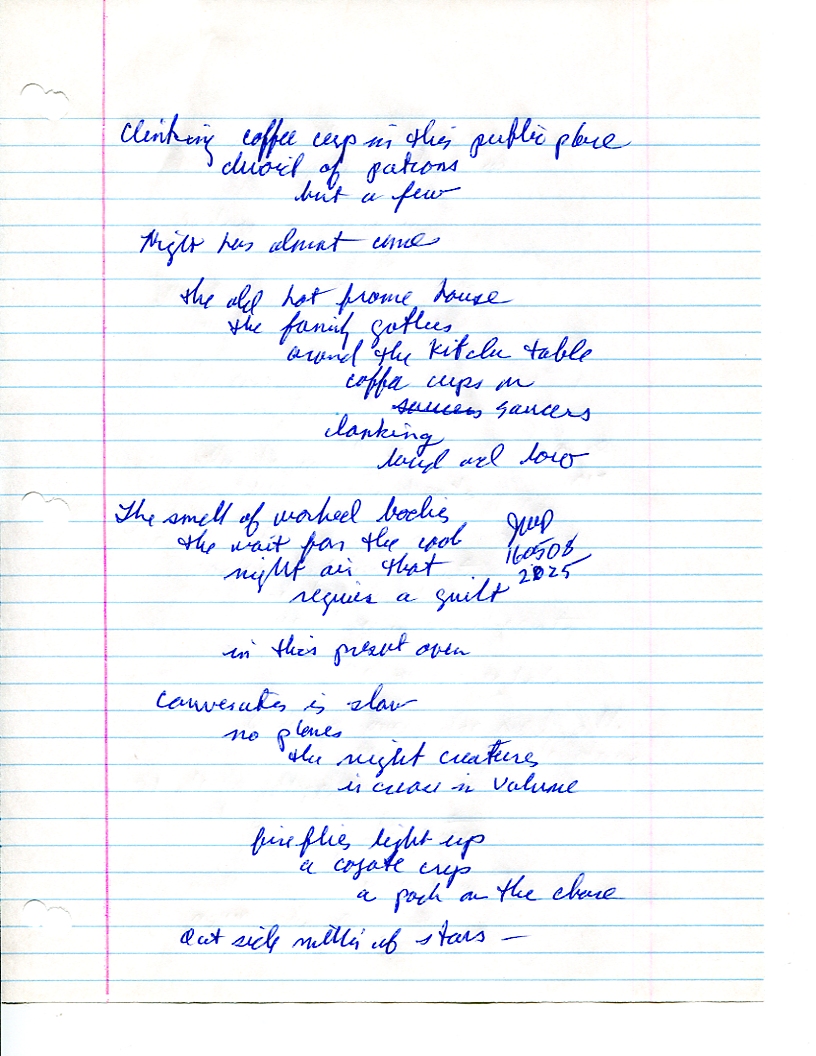 Clinking coffee cups in this public place
devoid of patrons
but a few
Night has almost come
the old hot frame house
the family gathers
around the kitchen table
coffee cups on
saucers saucers
clanking
loud and low
The smell of worked bodies
the wait for the cool
night air that
requires a quilt
JWP
160508
2025
in this present oven
Conversation is slow
no planes
the night creatures
increase in volume
fireflies light up
a coyote cries
a pack on the chase
Outside of stars —